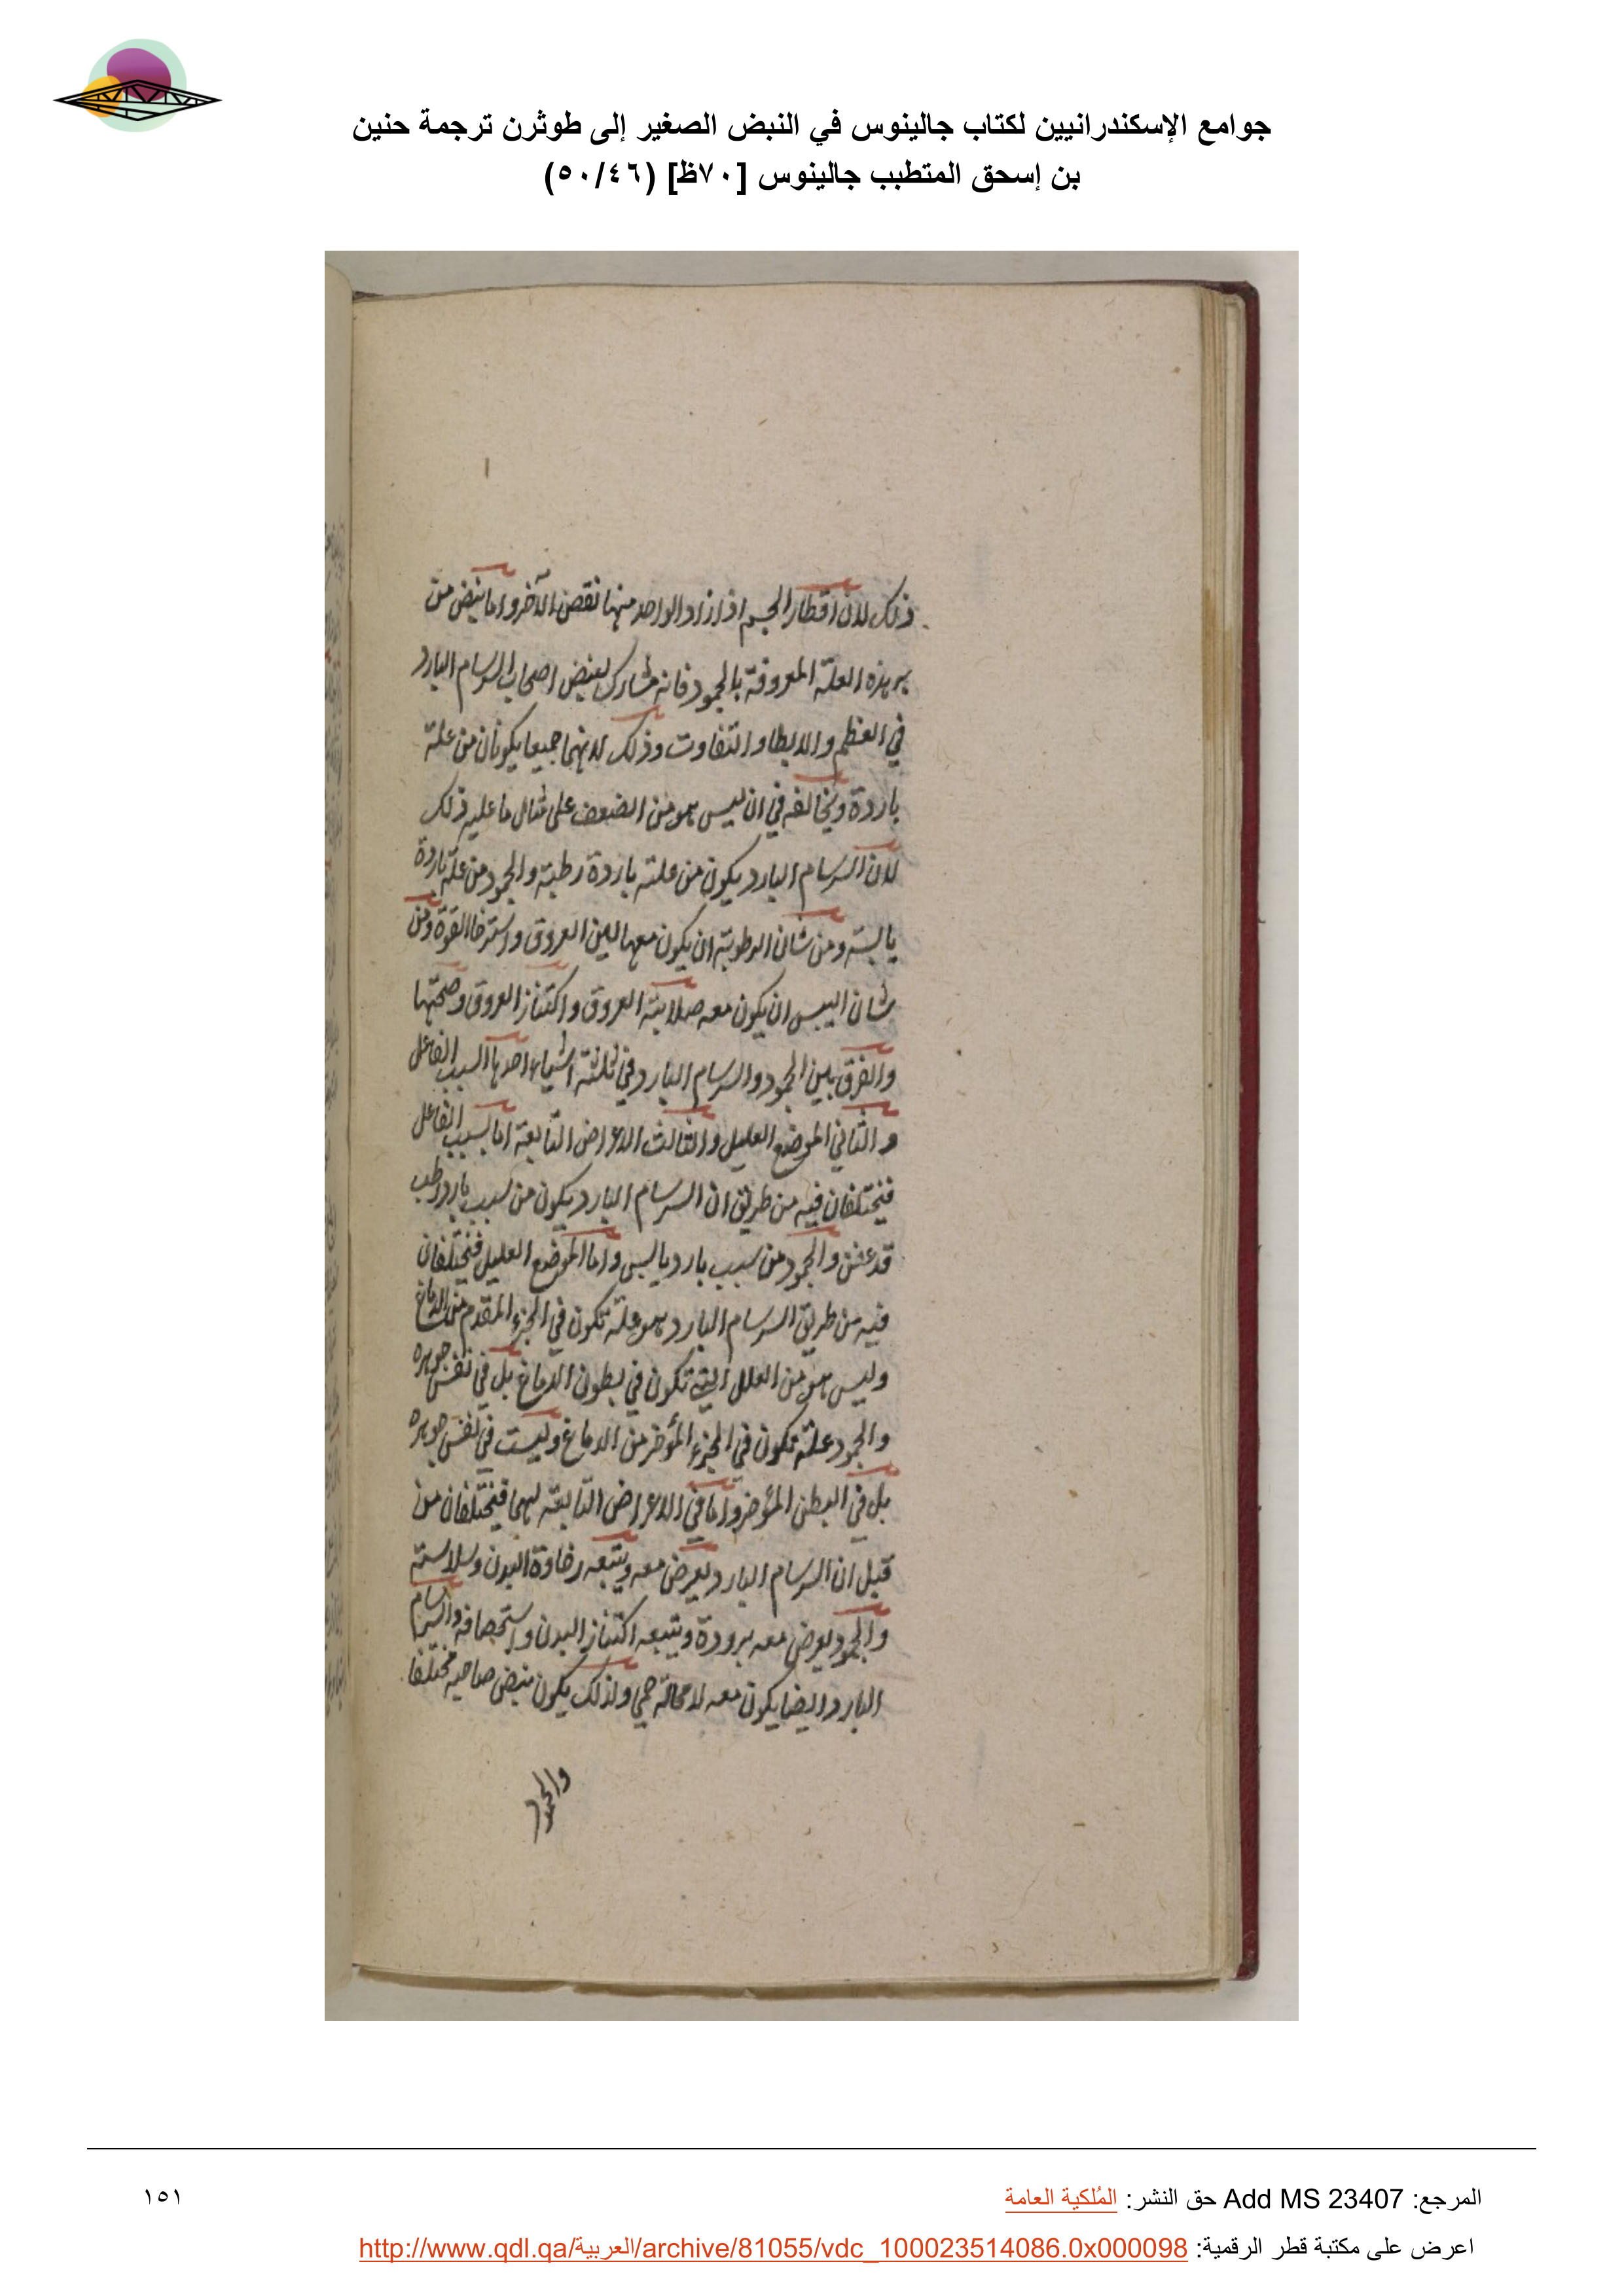 جوامع الإسكندرانيين لكتاب جالينوس في النبض الصغير إلى طوثرن ترجمة حنين
بن إسحق المتطبب جالينوس [٧٠ظ] (٥٠/٤٦)
ذلك لان اقطار الجسم اذا زاد الواحد منها نقص الآخر واما نبض من
به هذه العلة المعروفة بالجمود فانه مشارك لنبض اصحاب السرسام البارد
في العظم والابطا والتفاوت وذلك لانهما جميعا يكونان من علة
باردة ويخالفه في ان ليس هو من الضعف على مثال ما عليه ذلك
لان السرسام البارد يكون من علته باردة رطبة والجمود من علة باردة
يابسة ومن شان الرطوبة ان يكون معها لين العروق واسترخا القوة ومن
شان اليبس ان يكون معه صلابة العروق واكتناز العروق وصحتها
والفرق بين الجمود والسرسام البارد في ثلثة اشياء احدها السبب الفاعل
والثاني الموضع العليل والثالث الاعراض التابعة اما بسبب الفاعل
فيختلفان فيه من طريق ان السرسام البارد يكون من سبب بارد رطب
قد عفن والجمود من سبب بارد يابس واما الموضع العليل فيختلفان
فيه من طريق السرسام البارد هو علة تكون في الجزء المقدم من الدماغ
وليس هو من العلل التي تكون في بطون الدماغ بل في نفس جوهره
والجمود علة تكون في الجزء المؤخر من الدماغ وليست في نفس جوهره
بل في البطن المؤخر واما في الاعراض التابعة لهما فيختلفان من
قبل ان السرسام البارد يعرض معه ويتبعه رخاوة البدن وسلاسته
والجمود يعرض معه برودة ويتبعه اكتناز البدن واستحصافه والسرسام
البارد ايضا يكون معه لا محالة حمى ولذلك يكون نبض صاحبه مختلفا
والجمود
المرجع: Add MS 23407 حق النشر: المُلكية العامة
١٥١
اعرض على مكتبة قطر الرقمية: http://www.qdl.qa/العربية/archive/81055/vdc_100023514086.0x000098